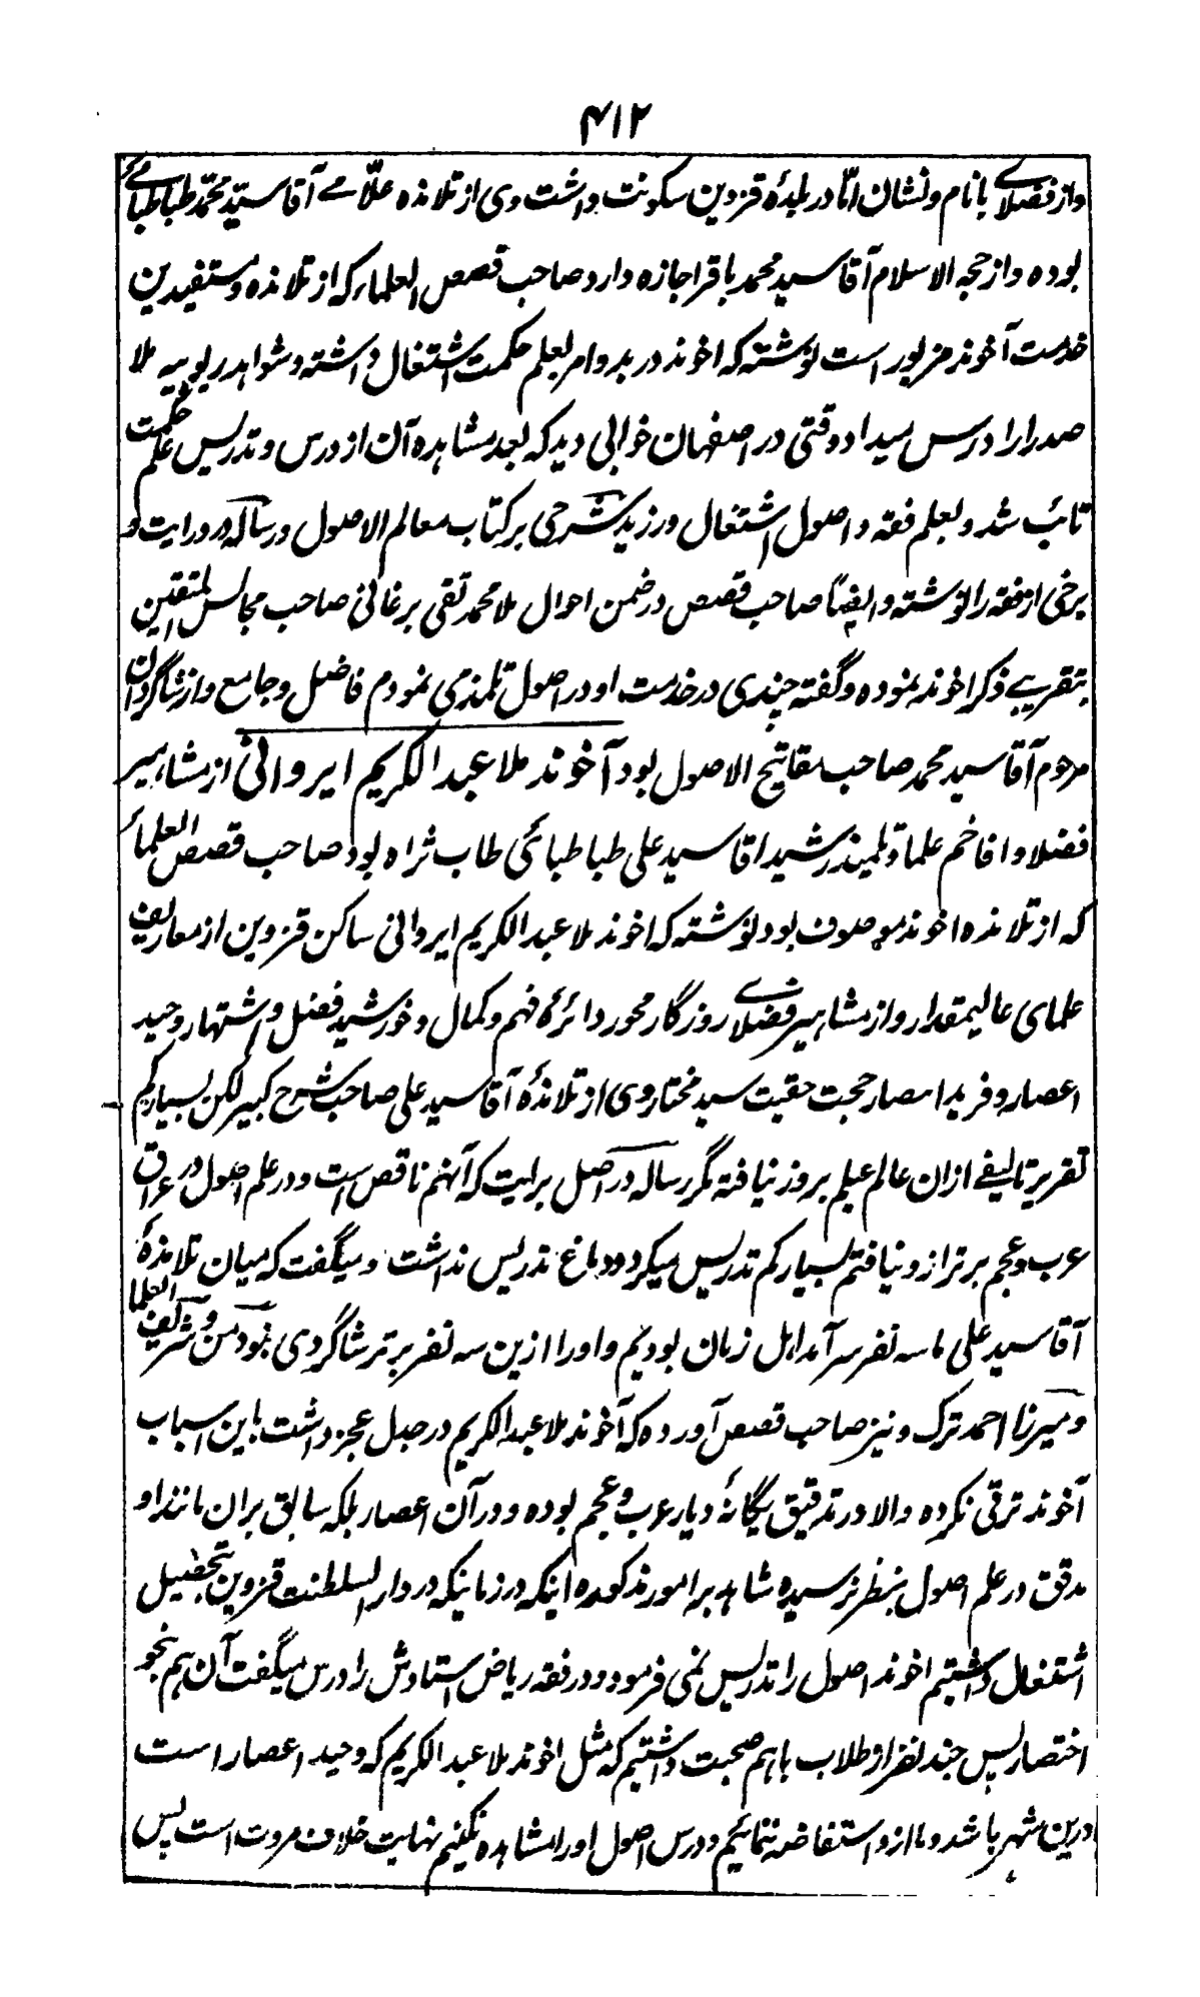 ۴۱۲
واز فضلای بانام و نشان امّا در بلدهٔ قزوین سکونت داشت وی از تلامذه علّامے آقا سیّد محمّد طباطبائے
بوده و از حجه الاسلام آقا سید محمد باقر اجازه دارد صاحب قصص العلماء که از تلامذه و مستفیدین
خدمت آخوند مزبور است نوشته که اخوند در بدو امر بعلم حکمت اشتغال داشته و شواهد ربوبیه ملا
صدرا را درس میداد وقتی در اصفهان خوابی دید که بعد مشاهده آن از درس و تدریس علم حکمت
تائب شد و بعلم فقه و اصول اشتغال ورزید شرحی بر کتاب معالم الاصول و رساله در درایت و
برخی از فقه را نوشته و ایضاً صاحب قصص در ضمن احوال ملا محمد تقی برغانی صاحب مجالس المتقین
بتقریبے ذکر اخوند نموده و گفته چندی در خدمت او در اصول تلمذی نمودم فاضل و جامع و از شاگردان
مرحوم آقا سید محمد صاحب مفاتیح الاصول بود آخوند ملا عبد الکریم ایروانی از مشاهیر
فضلا و افاخم علما و تلمیذ رشید اقا سید علی طباطبائی طاب ثراه بود صاحب قصص العلماء
که از تلامذه اخوند موصوف بود نوشته که اخوند ملا عبد الکریم ایروانی ساکن قزوین از معاریف
علمای عالیمقدار و از مشاهیر فضلاے روزگار محور دائرۀ فهم و کمال و خورشید فضل و اشتهار وحید
اعصار و فرید امصار حجت حقیت سید مختار وی از تلامذۀ آقا سید علی صاحب شرح کبیر لکن بسیار کم
تقریر تالیفے ازان عالم علیم بروز نیافته مگر رساله در اصل برایت که آنهم ناقص است و در علم اصول در عراق
عرب و عجم برتر ازو نیافتم بسیار کم تدریس میکرد و دماغ تدریس نداشت و میگفت که میان تلامذۀ
آقا سید علی ما سه نفر سر آمد اهل زمان بودیم و او را ازین سه نفر برتر شاگردی نبود من و شریف العلما
و میرزا احمد ترک و نیز صاحب قصص آورده که آخوند ملا عبد الکریم در جدل عجز داشت باین اسباب
آخوند ترقی نکرده والا در تدقیق یگانۀ دیار عرب و عجم بوده و در آن اعصار بلکه سابق بران مانند او
مدقق در علم اصول بنظر نرسیده شاهد بر امور مذکوره اینکه در زمانیکه در دار السلطنت قزوین بتحصیل
اشتغال داشتیم اخوند اصول را تدریس نمی فرمود و در فقه ریاض استادش را درس میگفت آن هم بنحو
اختصار پس چند نفر از طلاب باهم صحبت داشتیم که مثل اخوند ملا عبد الکریم که وحید اعصار است
درین شهر باشد و ما ازو استفاضه ننمائیم و درس اصول او را مشاهده نکنیم نهایت خلاف مروت است پس